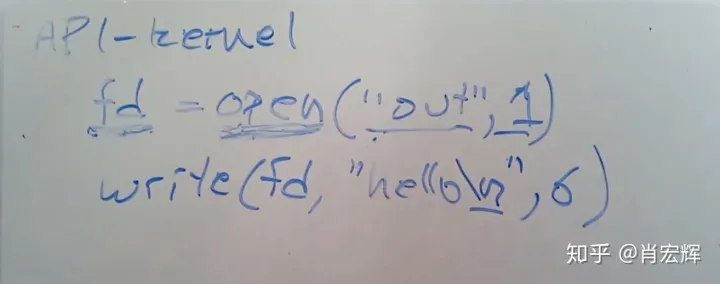 API-kernel
fd = open("out", 1)
write(fd, "hello\n", 6)
知乎 @肖宏辉